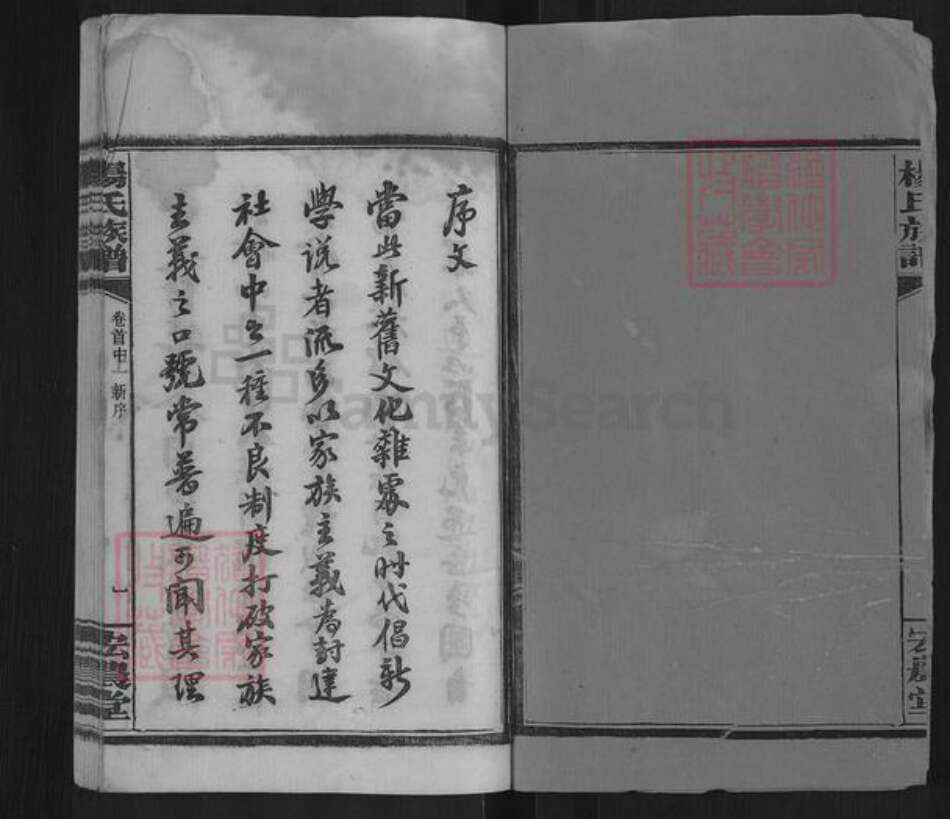 楊氏族譜
序文
當此新舊文化雜處之时代倡新
學说者流多以家族主義為封建
社會中之一種不良制度打破家族
主義之口號常普遍可聞其理
楊氏族譜
卷首中上 新序
一
宏農堂
FamilySearch